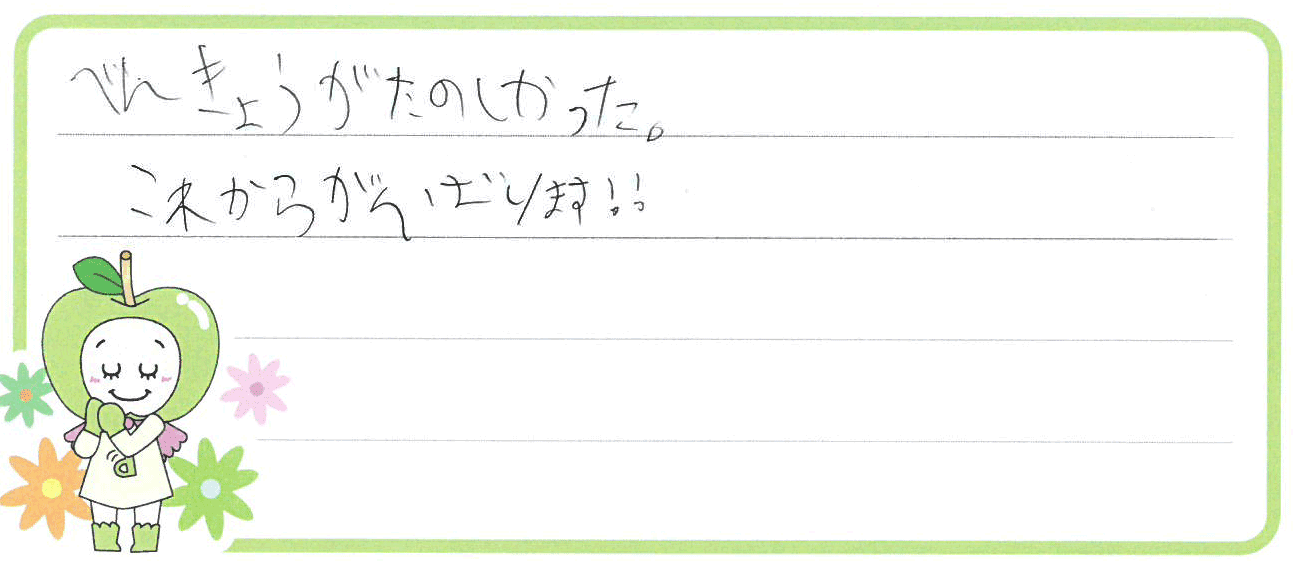 べんきょうがたのしかった。
これからがんばります!!